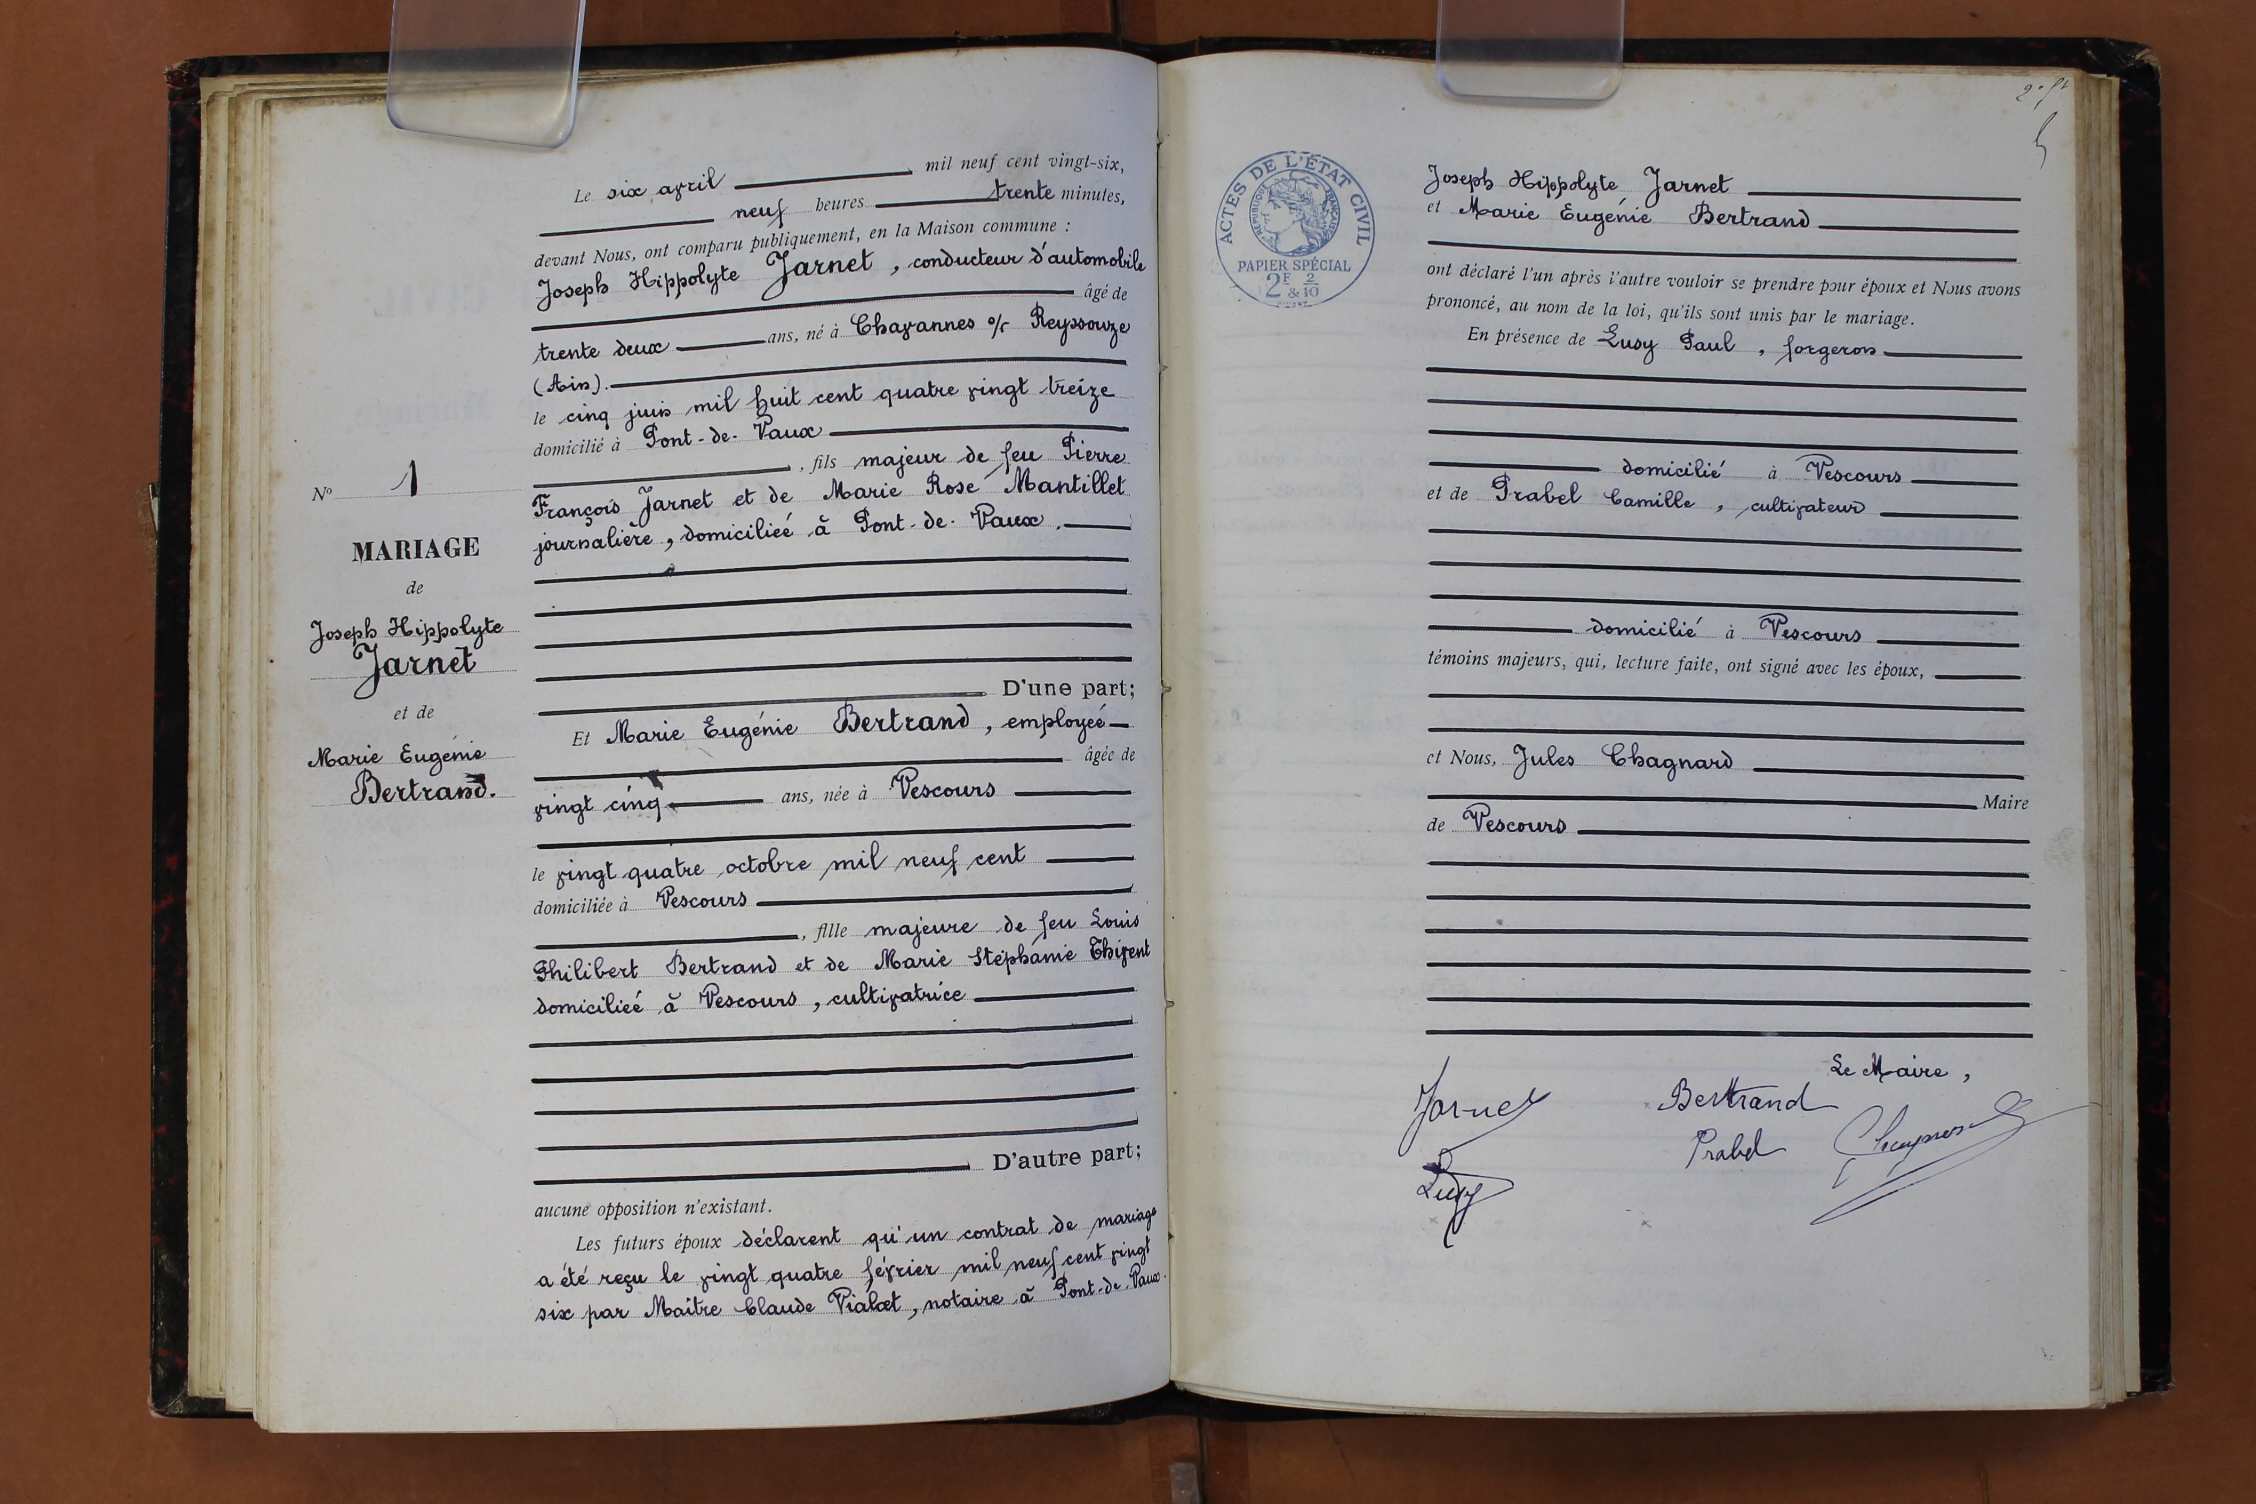 Nº 1
MARIAGE
de
Joseph Hippolyte
Jarnet
et de
Marie Eugénie
Bertrand.
Le six avril mil neuf cent vingt-six,
neuf heures trente minutes,
devant Nous, ont comparu publiquement, en la Maison commune :
Joseph Hippolyte Jarnet, conducteur d'automobile
âgé de
trente deux ans, né à Chavannes s/r Reyssouze
(Ain).
le cinq juin mil huit cent quatre vingt treize
domicilié à Pont-de-Vaux
, fils majeur de feu Pierre
François Jarnet et de Marie Rose Mantillet
journalière, domiciliée à Pont-de-Vaux.
D'une part;
Et Marie Eugénie Bertrand, employée
âgée de
vingt cinq ans, née à Vescours
le vingt quatre octobre mil neuf cent
domiciliée à Vescours
, fille majeure de feu Louis
Philibert Bertrand et de Marie Stéphanie Thivent
domiciliée à Vescours, cultivatrice
D'autre part;
aucune opposition n'existant.
Les futurs époux déclarent qu'un contrat de mariage
a été reçu le vingt quatre février mil neuf cent vingt
six par Maître Claude Vialet, notaire à Pont-de-Vaux.
ACTES DE L'ÉTAT CIVIL
RÉPUBLIQUE FRANÇAISE
PAPIER SPÉCIAL
2F & 2/10
Joseph Hippolyte Jarnet
et Marie Eugénie Bertrand
ont déclaré l'un après l'autre vouloir se prendre pour époux et Nous avons
prononcé, au nom de la loi, qu'ils sont unis par le mariage.
En présence de Lusy Paul, forgeron
domicilié à Vescours
et de Prabel Camille, cultivateur
domicilié à Vescours
témoins majeurs, qui, lecture faite, ont signé avec les époux,
et Nous, Jules Chagnard
Maire
de Vescours
Le Maire,
Jarnet Bertrand
Lusy Prabel Chagnard